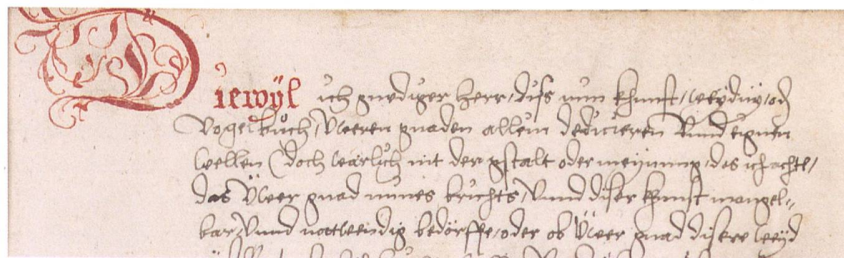 Diewÿl ich gnediger herr, diſs min khunſt, weÿdny, od
Vogelbůch, Üweren gnaden allein dedicieren Vnnd eignen
wellen (doch wärlich nit der gſtalt oder meynung, das ich achte,
das Üwer gnad mines brichts, Vnnd diſer khunſt mangel-
bar, Vnnd nottwendig bedörffe, oder ob Üwer gnad diſere weÿd